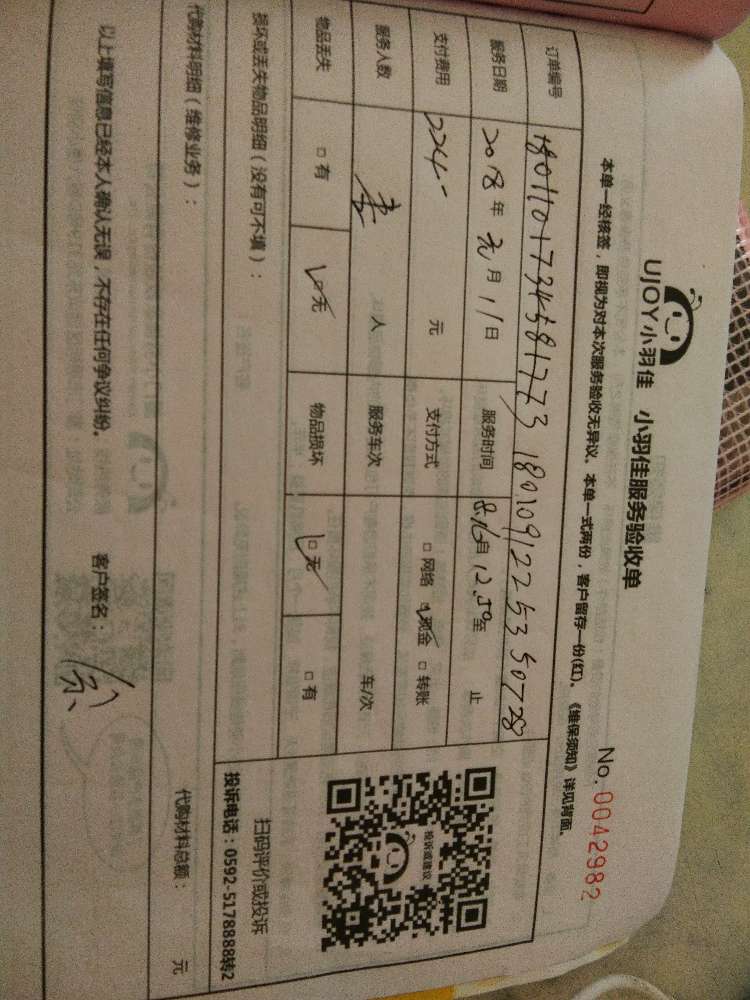 UJOY小羽佳 小羽佳服务验收单
No. 0042982
本单一经核签，即视为对本次服务验收无异议。本单一式两份，客户留存一份(红)。《维保须知》详见背面。
订单编号 1801101734581773 18010912253 50728
服务日期 2018年元月11日 服务时间 8.16自12.50至 止
支付费用 224- 元 支付方式 □网络 √现金 □转账
服务人数 人 服务车次 车/次
物品丢失 □有 √无 物品损坏 √无 □有
损坏或丢失物品明细（没有可不填）：
投诉或建议
扫码评价或投诉
投诉电话：0592-5178888转2
代购材料明细（维修业务）：
代购材料总额： 元
以上填写信息已经本人确认无误，不存在任何争议纠纷。 客户签名：